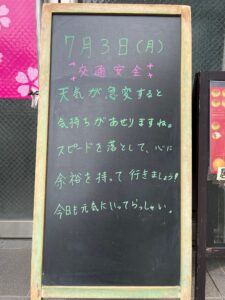 7月3日(月)
交通安全
天気が急変すると
気持ちがあせりますね。
スピードを落として、心に
余裕を持って行きましょう!
今日も元気にいってらっしゃい。